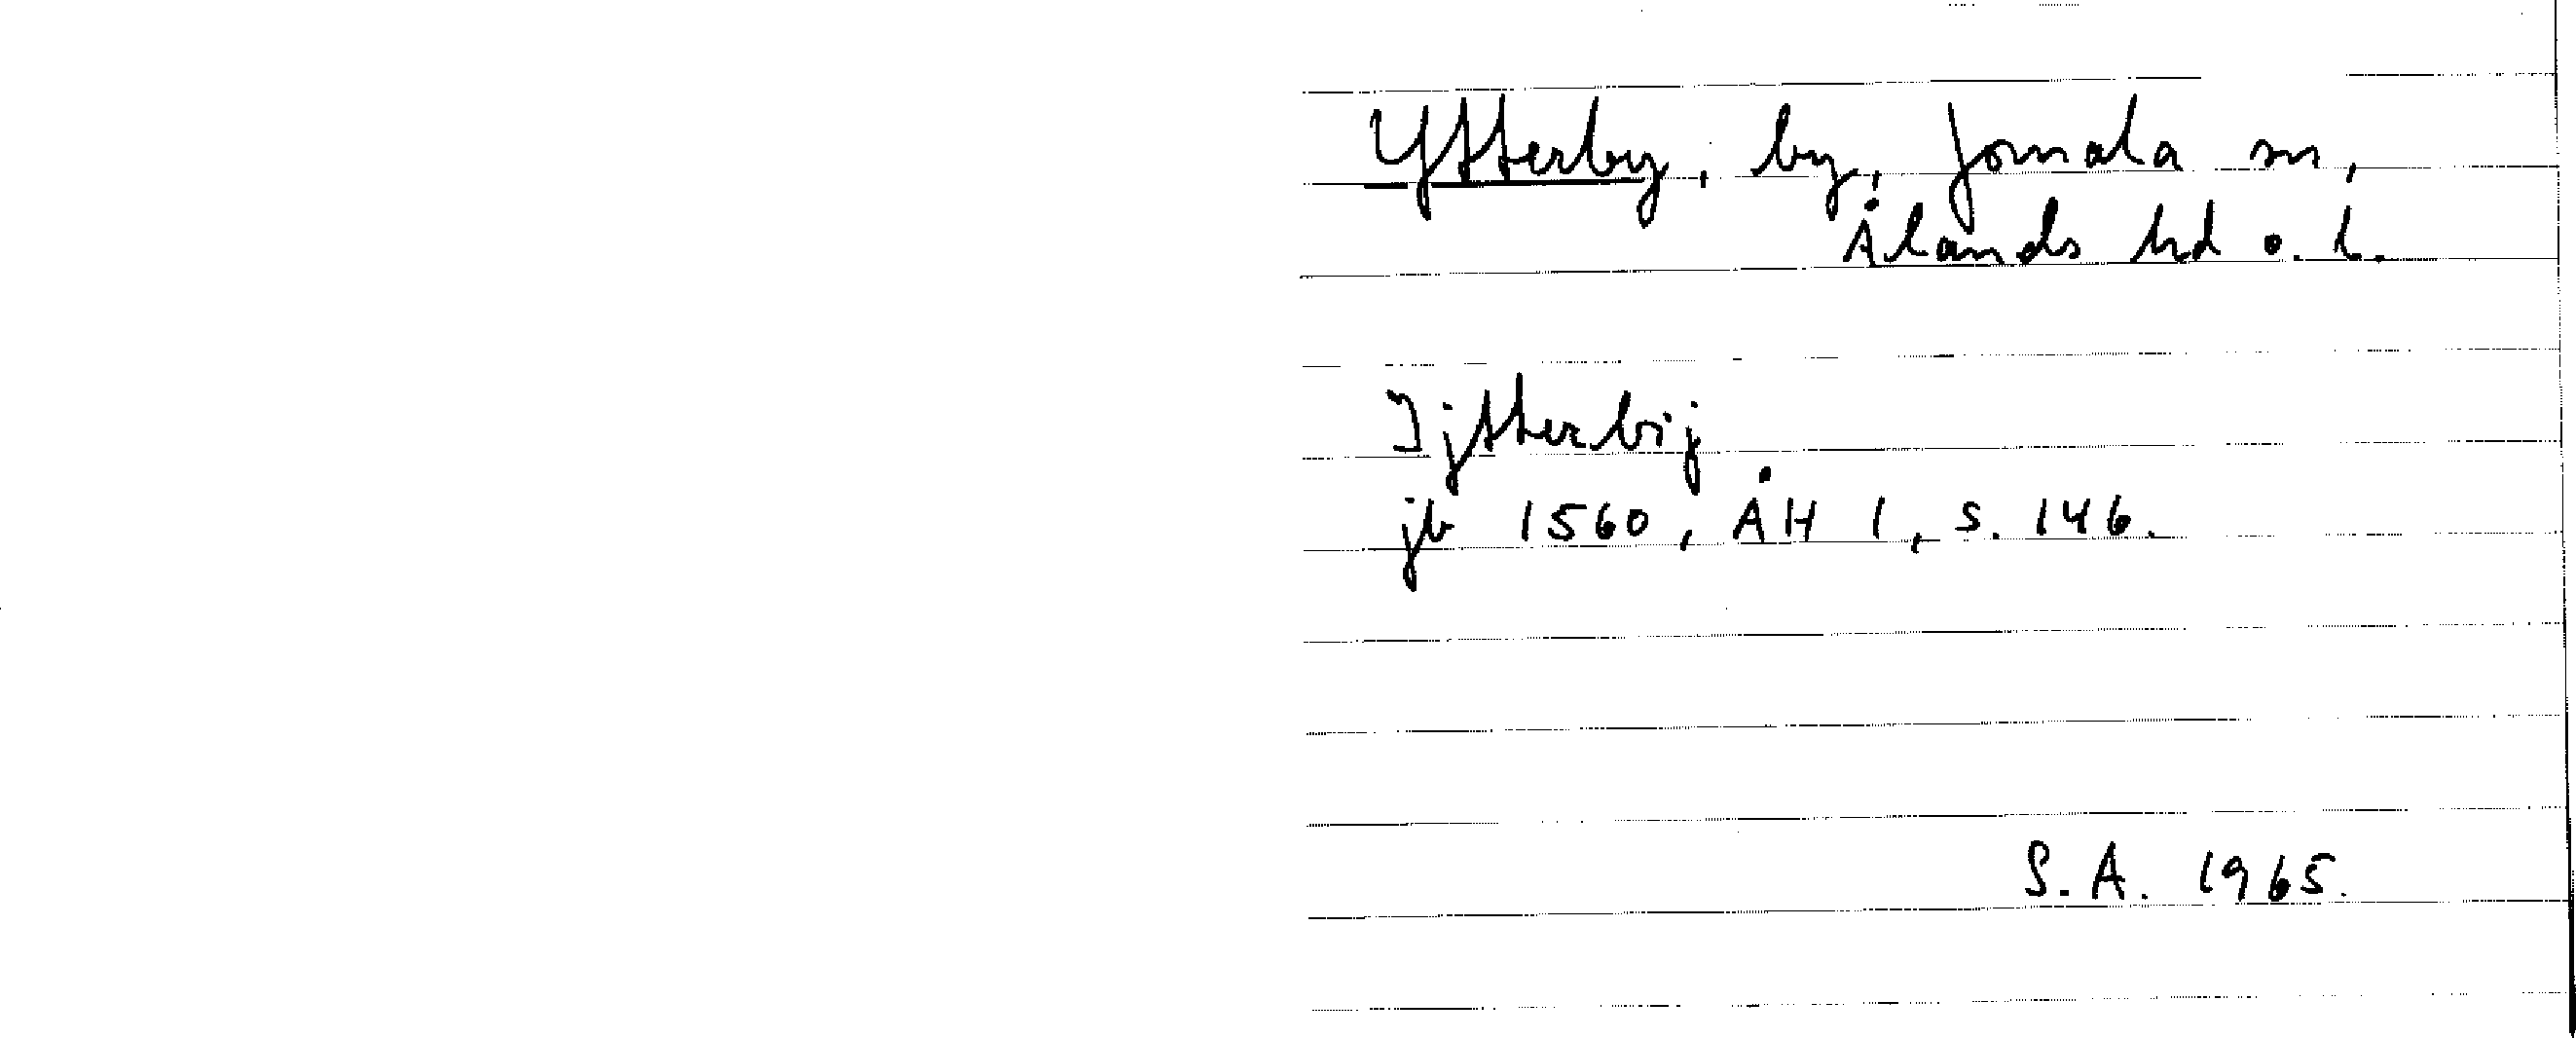 Ytterby, by, Jomala sn,
Ålands hd o. l.
Ijtterbij
jb 1560, ÅH 1, s. 146.
S.A. 1965.